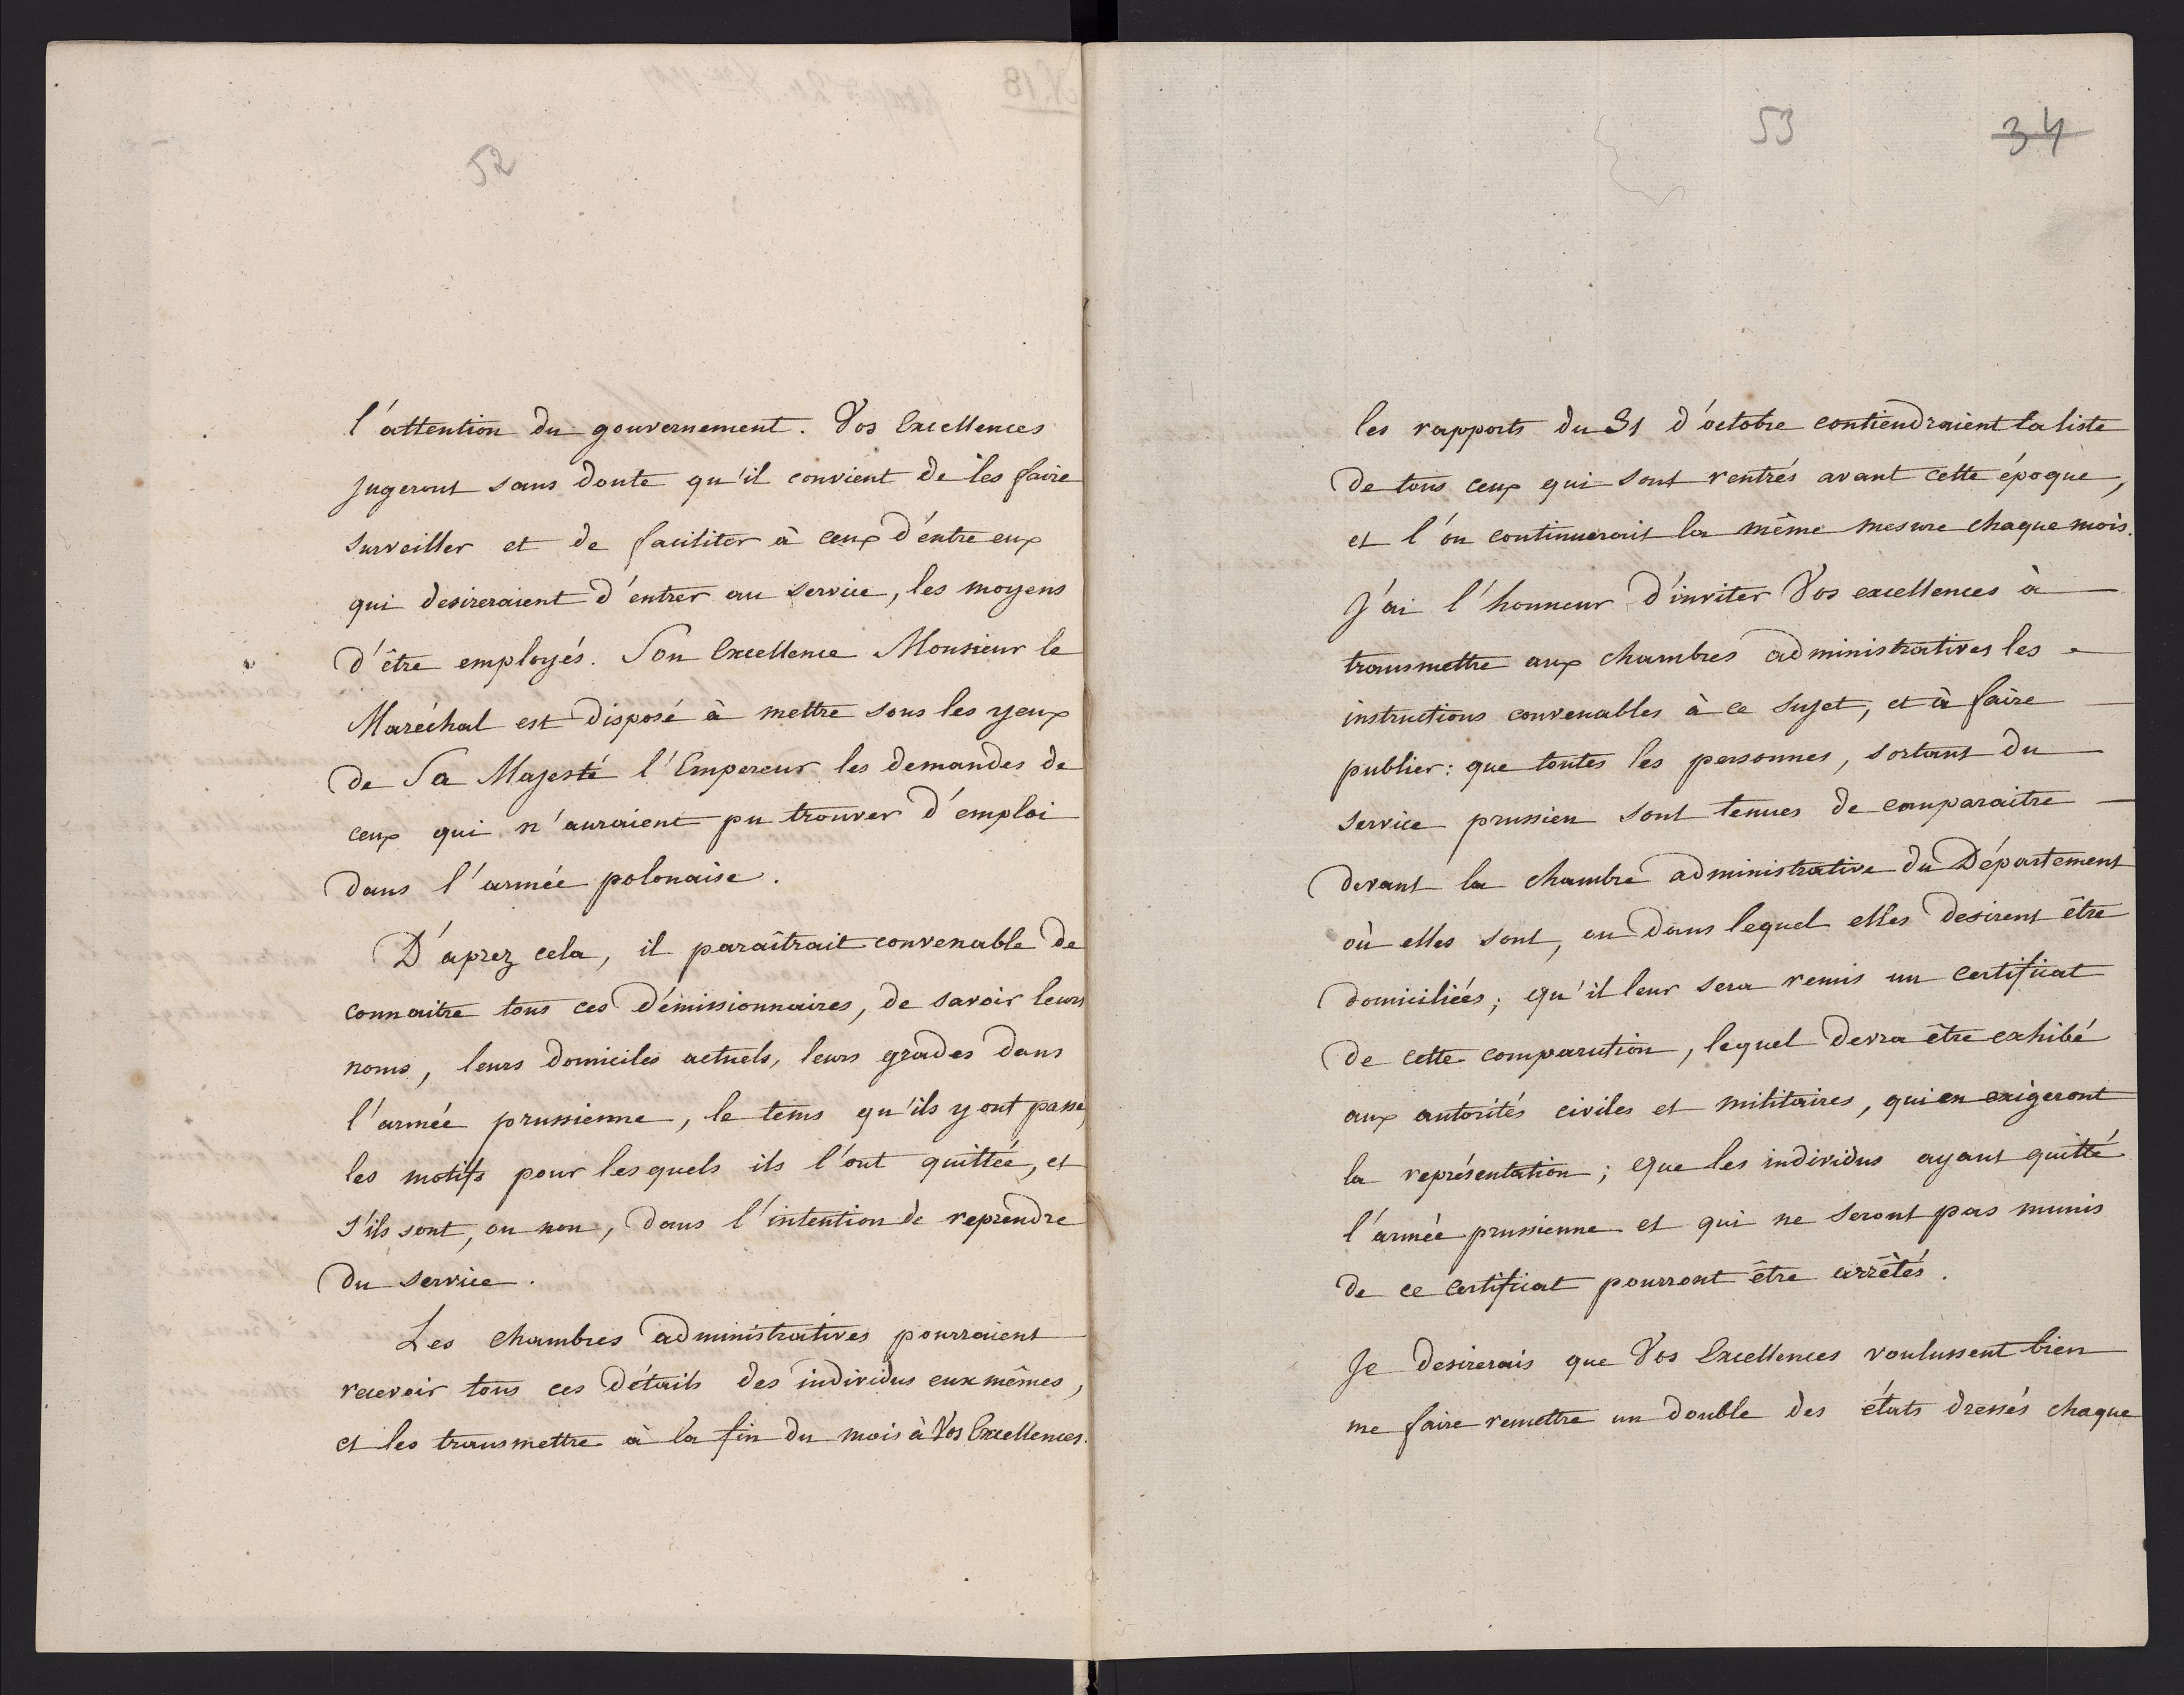 52
l'attention du gouvernement. Vos Excellences
jugeront sans doute qu'il convient de les faire
surveiller et de faciliter à ceux d'entre eux
qui desireraient d'entrer au service, les moyens
d'être employés. Son Excellence Monsieur le
Maréchal est disposé à mettre sous les yeux
de Sa Majesté l'Empereur les demandes de
ceux qui n'auraient pu trouver d'emploi
dans l'armée polonaise.
D'aprez cela, il paraîtrait convenable de
connaitre tous ces démissionnaires, de savoir leurs
noms, leurs domiciles actuels, leurs grades dans
l'armée prussienne, le tems qu'ils y ont passé,
les motifs pour lesquels ils l'ont quittée, et
s'ils sont, ou non, dans l'intention de reprendre
du service.
Les chambres administratives pourraient
recevoir tous ces détails des individus eux mêmes,
et les transmettre à la fin du mois à Vos Excellences.
53 34
les rapports du 31 d'octobre contiendraient la liste
de tous ceux qui sont rentrés avant cette époque,
et l'on continuerait la même mesure chaque mois.
J'ai l'honneur d'inviter Vos excellences à
transmettre aux chambres administratives les
instructions convenables à ce sujet, et à faire
publier: que toutes les personnes, sortant du
service prussien sont tenues de comparaitre
devant la chambre administrative du Département
où elles sont, ou dans lequel elles desirent être
domiciliées; qu'il leur sera remis un certificat
de cette comparution, lequel devra être exhibé
aux autorités civiles et militaires, qui en exigeront
la représentation; que les individus ayant quitté
l'armée prussienne et qui ne seront pas munis
de ce certificat pourront être arrêtés.
Je desirerais que Vos Excellences voulussent bien
me faire remettre un double des états dressés chaque